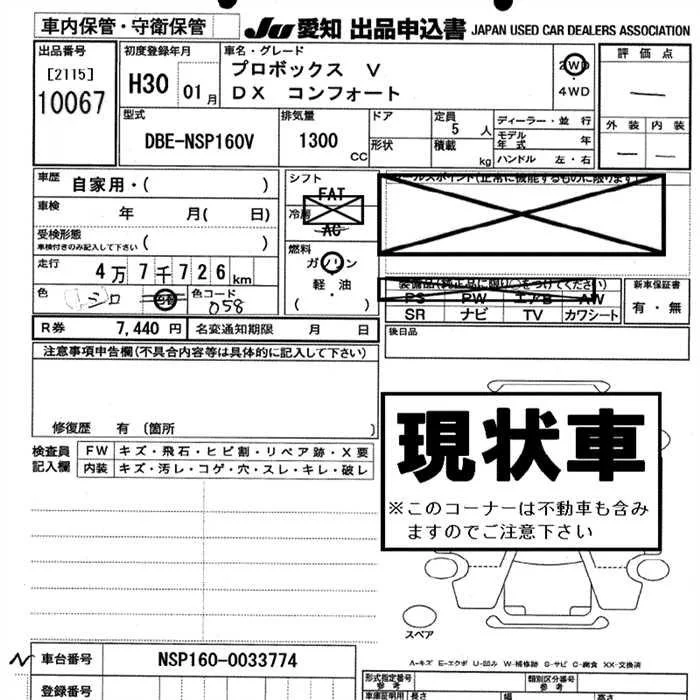 車内保管・守衛保管
JU 愛知 出品申込書 JAPAN USED CAR DEALERS ASSOCIATION
出品番号
[2115]
10067
初度登録年月
H30 01 月
車名・グレード
プロボックス V
DX コンフォート
2WD
4WD
評価点
外装 内装
型式
DBE-NSP160V
排気量
1300
CC
ドア
形状
定員
5 人
積載
kg
ディーラー・並行
モデル年式 年
ハンドル 左・右
車歴 自家用・( )
車検 年 月( 日)
受検形態
車検付きのみ記入して下さい ( )
走行 4万7千726km
色 シロ
色コード
058
シフト
FAT
冷房
AC
燃料
ガソリン
軽・油
( )
セールスポイント(正常に機能するものに限ります)
装備品(純正品に限り○をつけてください)
PS PW エアB AW
SR ナビ TV カワシート
新車保証書
有・無
R券 7,440 円 名変通知期限 月 日
後日品
注意事項申告欄(不具合内容等は具体的に記入して下さい)
修復歴 有 〔箇所 〕
検査員
記入欄
FW キズ・飛石・ヒビ割・リペア跡・X要
内装 キズ・汚レ・コゲ・穴・スレ・キレ・破レ
現状車
※このコーナーは不動車も含み
ますのでご注意下さい
スペア
A-キズ E-エクボ U-凹み W-補修跡 S-サビ C-腐食 XX-交換済
車台番号 NSP160-0033774
登録番号
形式指定番号
参考
類別区分番号
参考
車庫証明用 長さ 幅 高さ